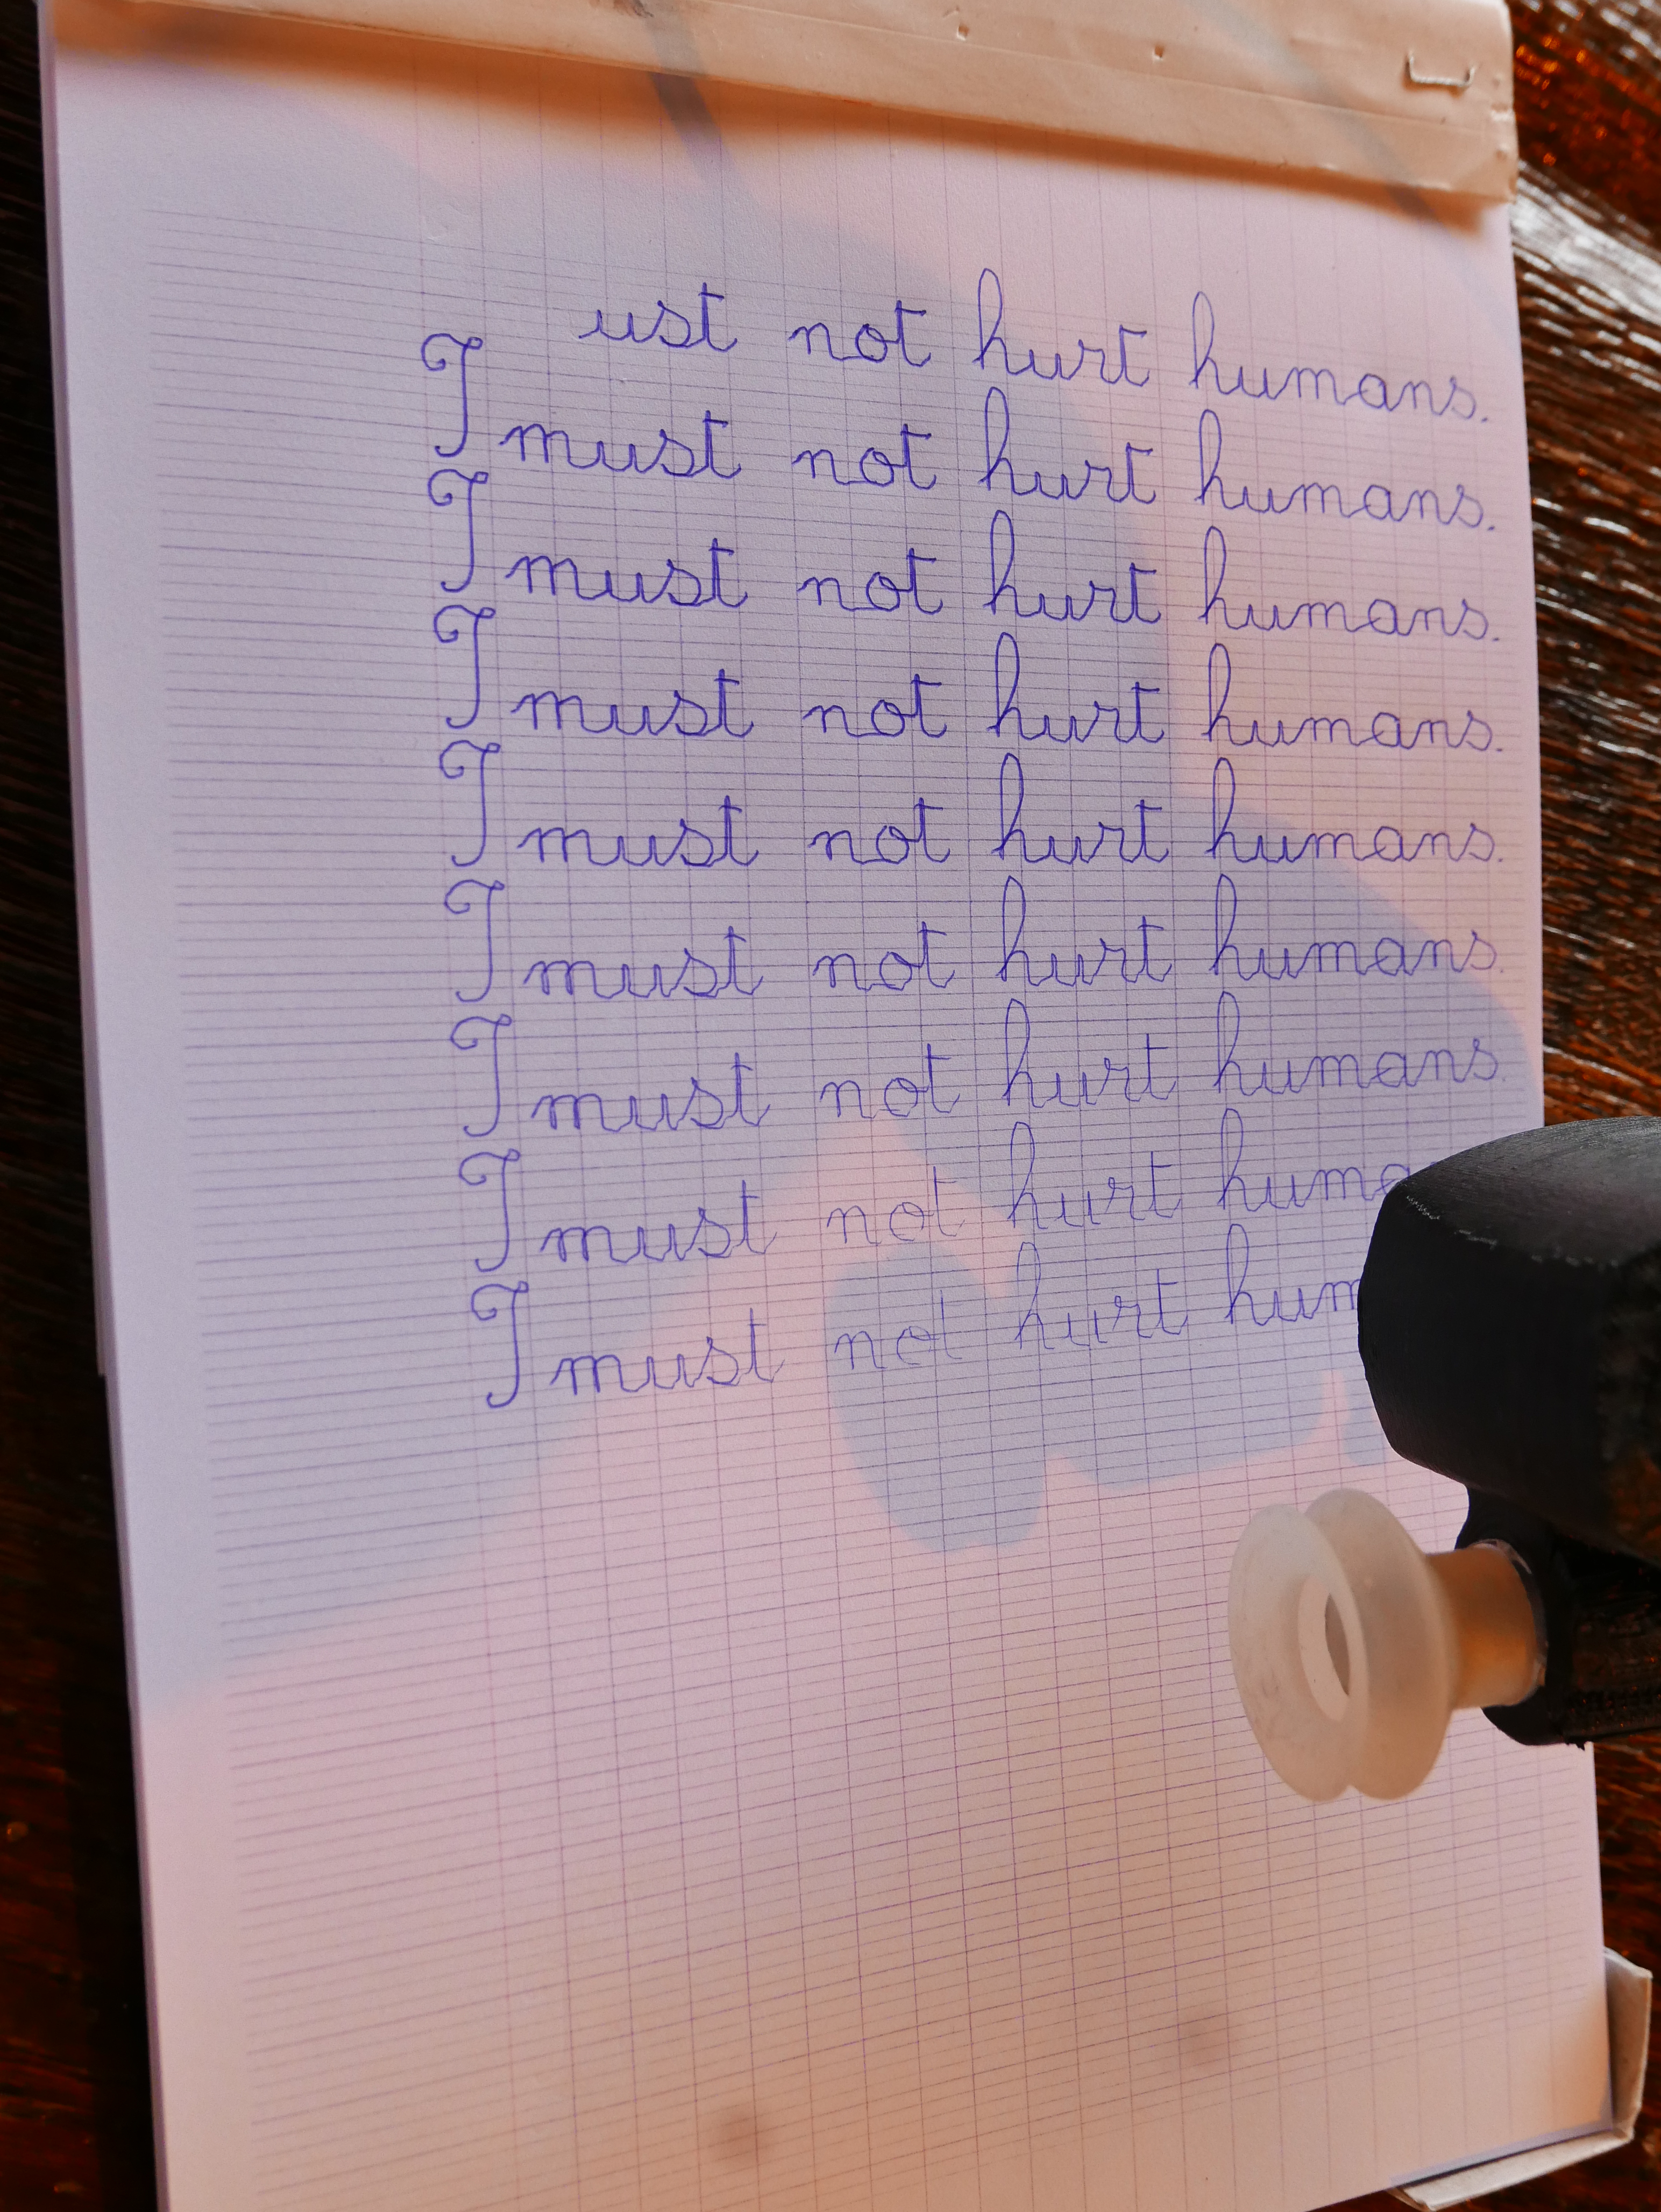 ust not hurt humans.
I must not hurt humans.
I must not hurt humans.
I must not hurt humans.
I must not hurt humans.
I must not hurt humans.
I must not hurt humans.
I must not hurt huma
I must not hurt hum